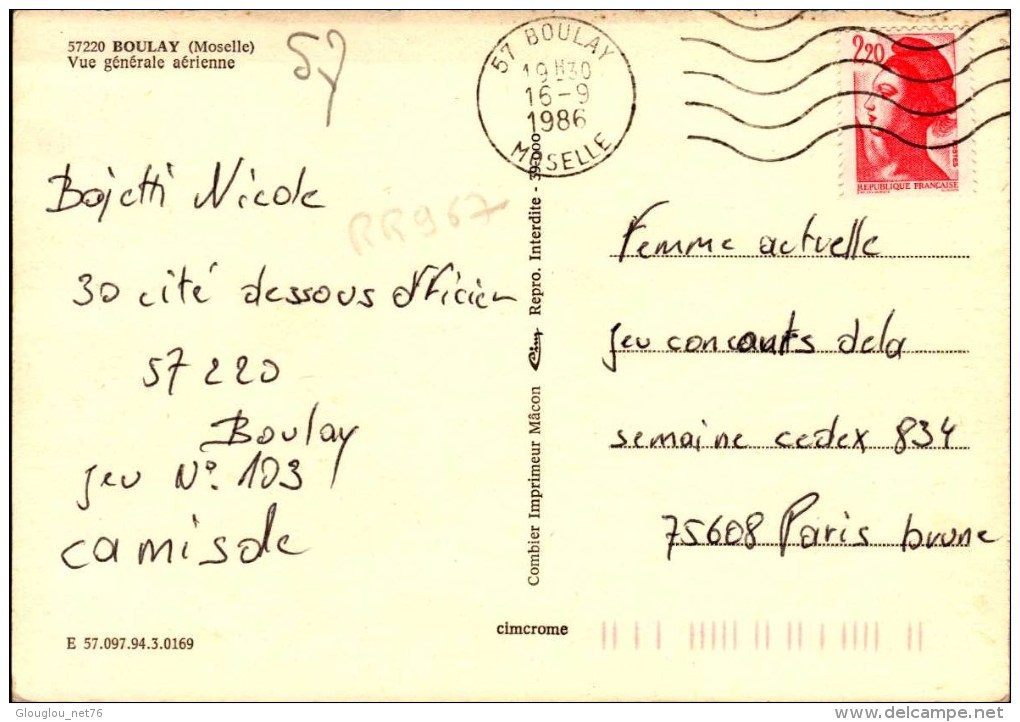 57220 BOULAY (Moselle)
Vue générale aérienne
57
57 BOULAY
19H30
16-9
1986
MOSELLE
2,20
POSTES
REPUBLIQUE FRANÇAISE
Bojetti Nicole
RR967
30 cité dessous
57220
Boulay
jeu N° 103
camisole
Combier Imprimeur Mâcon Repro. Interdite - 39-000
Femme actuelle
jeu concours dela
semaine cedex 834
75608 Paris brune
E 57.097.94.3.0169
cimcrome
Glouglou_net76
DELCAMPE.NET